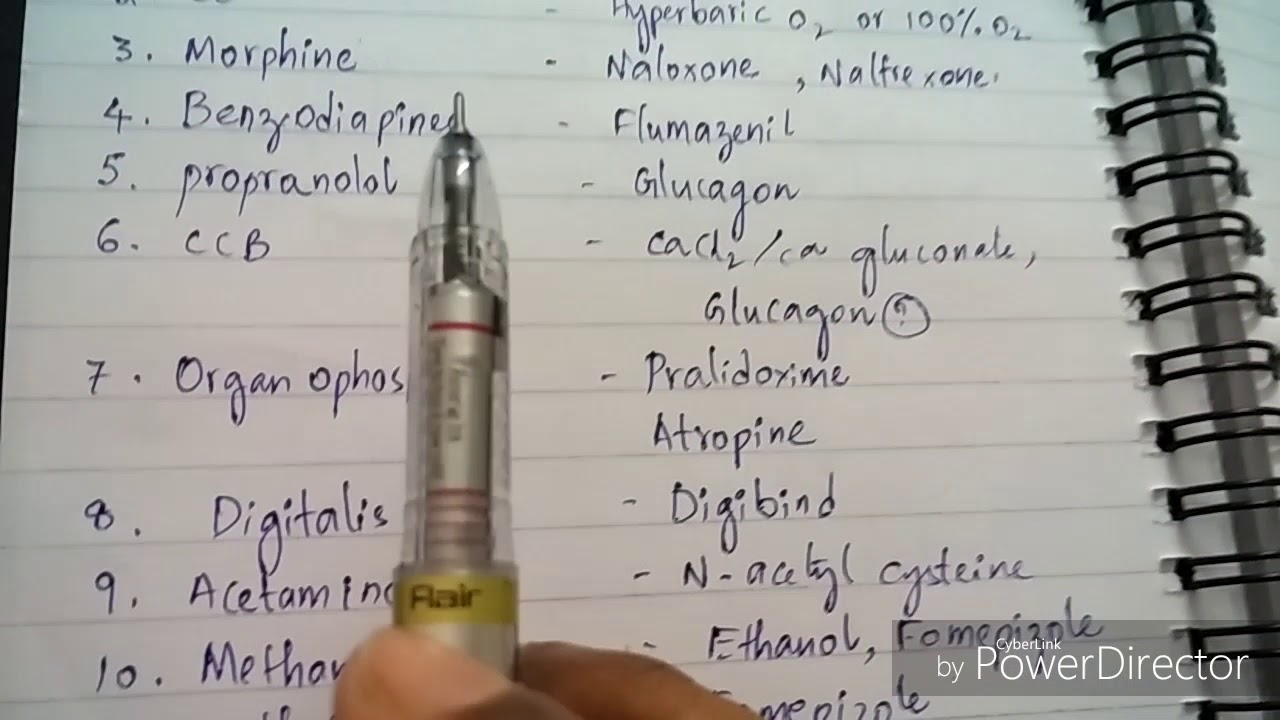 - Hyperbaric O2 or 100% O2
3. Morphine - Naloxone, Naltrexone.
4. Benzodiapines - Flumazenil
5. propranolol - Glucagon
6. CCB - CaCl2/ca gluconate,
Glucagon ?
7. Organophos - Pralidoxime
Atropine
8. Digitalis - Digibind
9. Acetamino - N-acetyl cysteine
10. Methan - Ethanol, Fomepizole
Fomepizole
Flair
CyberLink
by PowerDirector